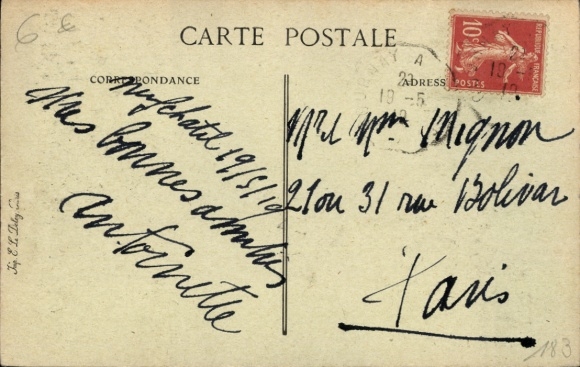 6 €
CARTE POSTALE
CORRESPONDANCE
ADRESSE
10c
REPUBLIQUE FRANÇAISE
POSTES
A
22
19-5
12
Neufchatel 19/5/12
Mes bonnes amitiés
Antoinette
Mr & Mme Mignon
21 ou 31 rue Bolivar
Paris
Imp. E. Le Deley, Paris
183